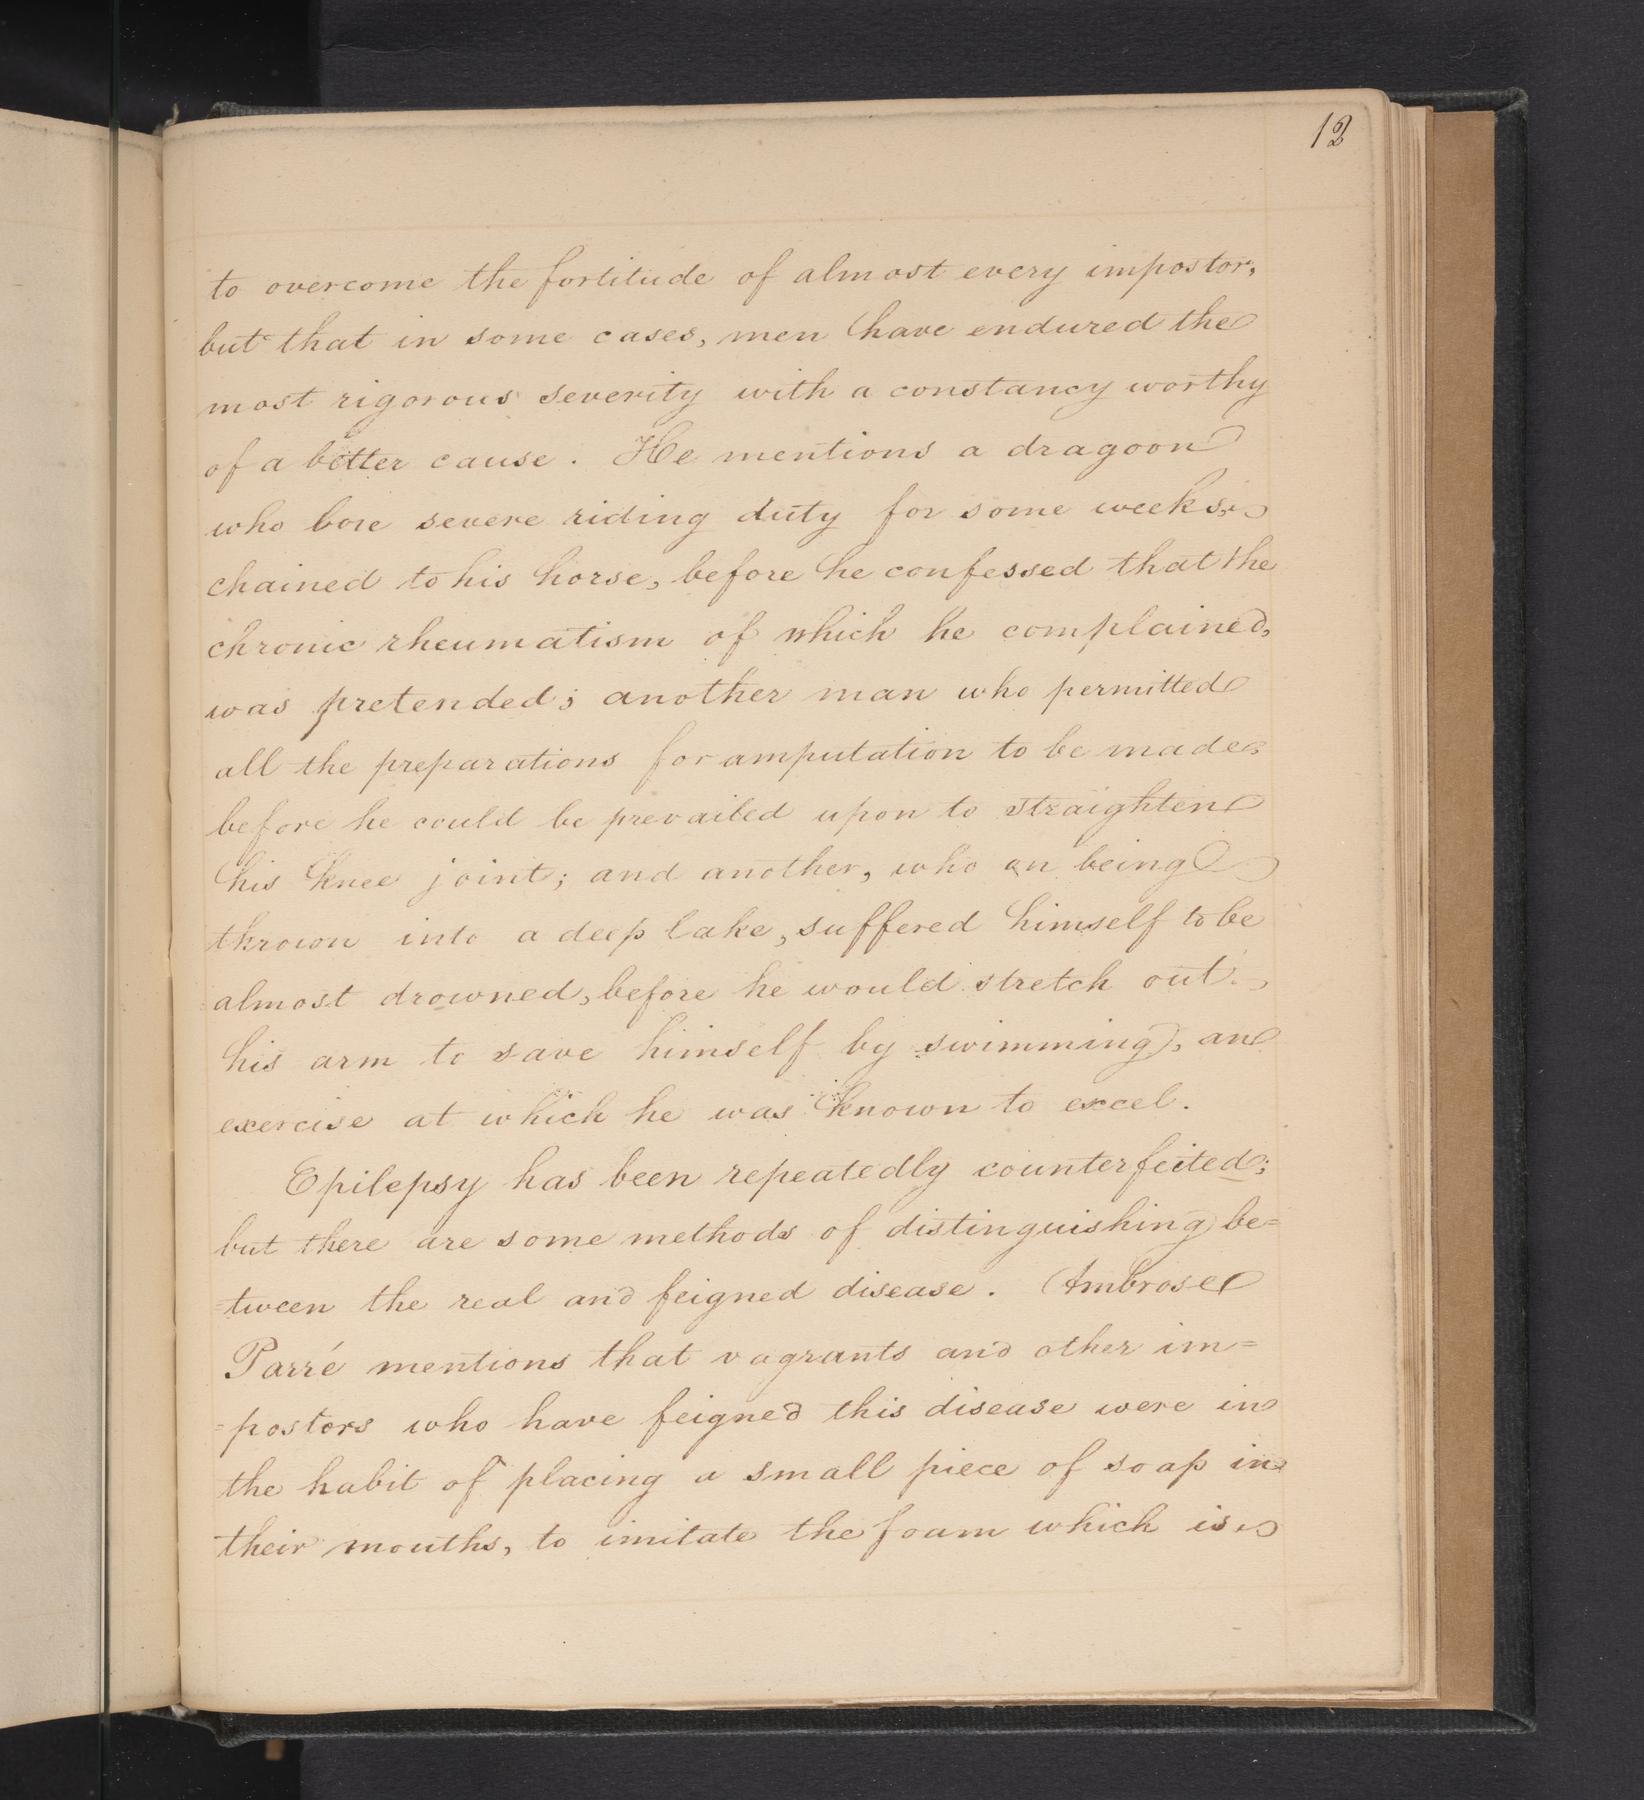 12
to overcome the fortitude of almost every impostor,
but that in some cases, men have endured the
most rigorous severity with a constancy worthy
of a better cause. He mentions a dragoon
who bore severe riding duty for some weeks,
chained to his horse, before he confessed that the
chronic rheumatism of which he complained,
was pretended; another man who permitted
all the preparations for amputation to be made,
before he could be prevailed upon to straighten
his knee joint; and another, who on being
thrown into a deep lake, suffered himself to be
almost drowned, before he would stretch out
his arm to save himself by swimming, an
exercise at which he was known to excel.
Epilepsy has been repeatedly counterfeited;
but there are some methods of distinguishing be=
=tween the real and feigned disease. Ambrose
Parré mentions that vagrants and other im=
=postors who have feigned this disease were in
the habit of placing a small piece of soap in
their mouths, to imitate the foam which is